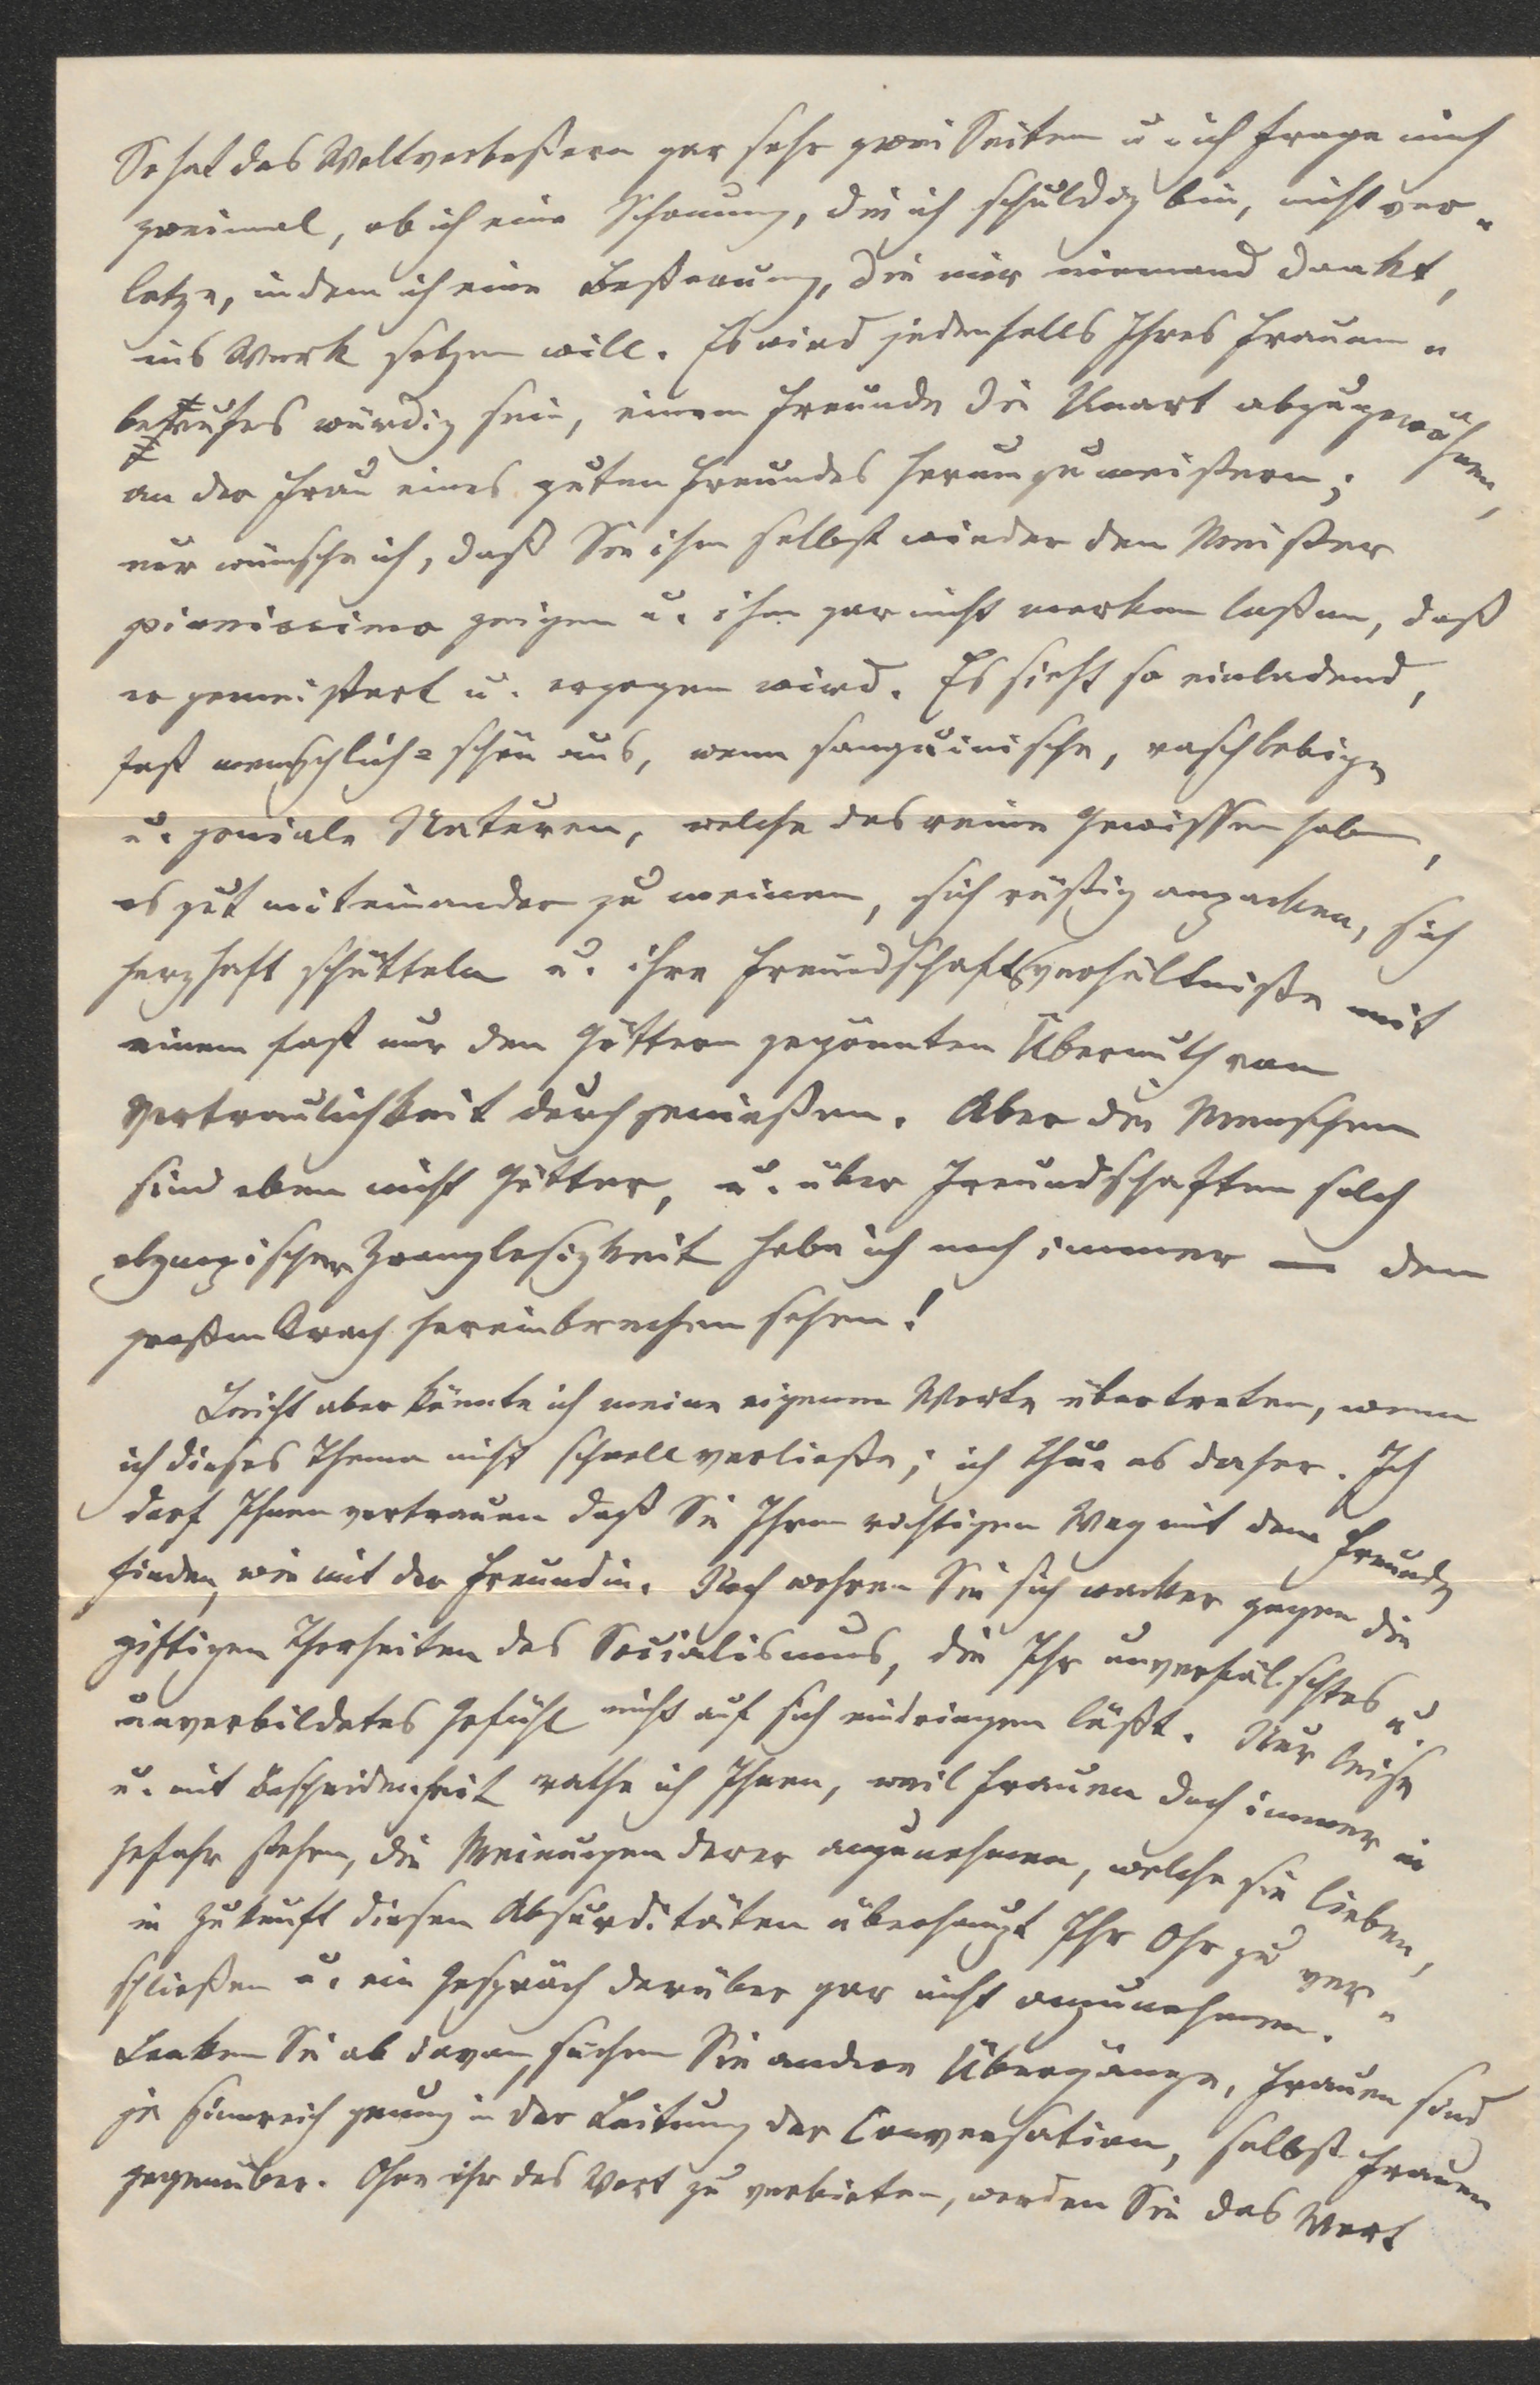 So hat das Weltverbeßern gar sehr zwei Seiten u. ich frage mich
zweimal, ob ich eine Schonung, die ich schuldig bin, nicht ver-
letze, indem ich eine Beßerung, die mir niemand dankt,
ins Werk setzen will. Es wird jedenfalls Ihres Frauen-
berufes würdig sein, einem Freunde die Unart abzugewöhnen,
an der Frau eines guten Freundes herumzumeistern;
nur wünsche ich, daß Sie ihm selbst wieder den Meister
pianissimo zeigen u. ihm gar nicht merken laßen, daß
er gemeistert u. erzogen wird. Es sieht so einladend,
fast menschlich-schön aus, wenn sanguinische, raschlebige
u. joviale Naturen, welche das reine Gewissen haben,
es gut miteinander zu meinen, sich rüstig anpacken, sich
herzhaft schütteln u. ihre Freundschaftsverhältniße mit
einem fast nur den Göttern gegönnten Übermuth von
Vertraulichkeit durchgenießen. Aber die Menschen
sind eben nicht Götter, u. über Freundschaften solch
olympischer Zwanglosigkeit habe ich noch immer — den
großen Krach hereinbrechen sehen!
Leicht aber könnte ich meine eigenen Worte übertreten, wenn
ich dieses Thema nicht schnell verließe; ich thue es daher. Ich
darf Ihnen vertrauen daß Sie Ihren richtigen Weg mit dem Freunde
finden, wie mit der Freundin. Noch wehren Sie sich wacker gegen die
giftigen Thorheiten des Socialismus, die Ihr unverfälschtes u.
unverbildetes Gefühl nicht auf sich eindringen läßt. Nur leise
u. mit Bescheidenheit rathe ich Ihnen, weil Frauen doch immer in
Gefahr stehen, die Meinungen derer anzunehmen, welche sie lieben,
in Zukunft diesen Absurditäten überhaupt Ihr Ohr zu ver-
schließen u. ein Gespräch darüber gar nicht anzunehmen.
Lenken Sie ab davon, suchen Sie andere Übergänge, Frauen sind
ja sinnreich genug in der Leitung der Conversation, selbst Frauen
gegenüber. Ohne ihr das Wort zu verbieten, werden Sie das Wort